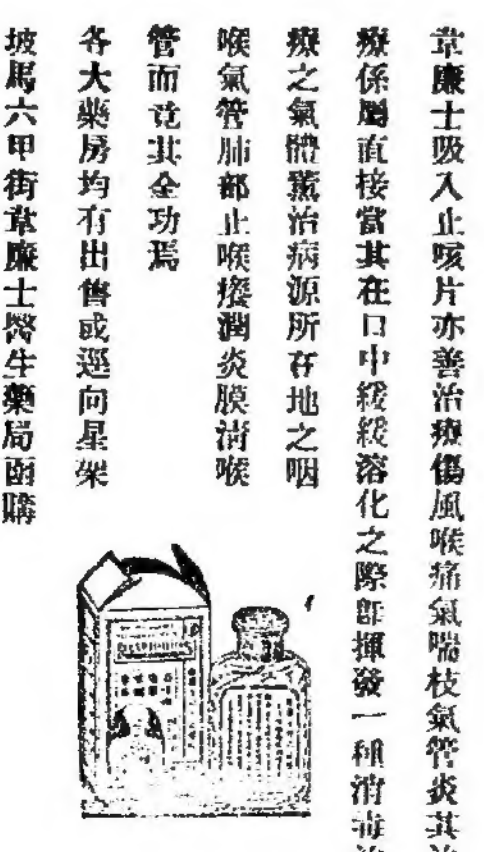 韋廉士吸入止咳片亦善治療傷風喉痛氣喘枝氣管炎其
療係屬直接當其在口中緩緩溶化之際卽揮發一種消毒
療之氣體薰治病源所在地之咽
喉氣管肺部止喉癢潤炎膜淸喉
管而竟其全功焉
各大藥房均有出售或逕向星架
坡馬六甲街韋廉士醫生藥局函購